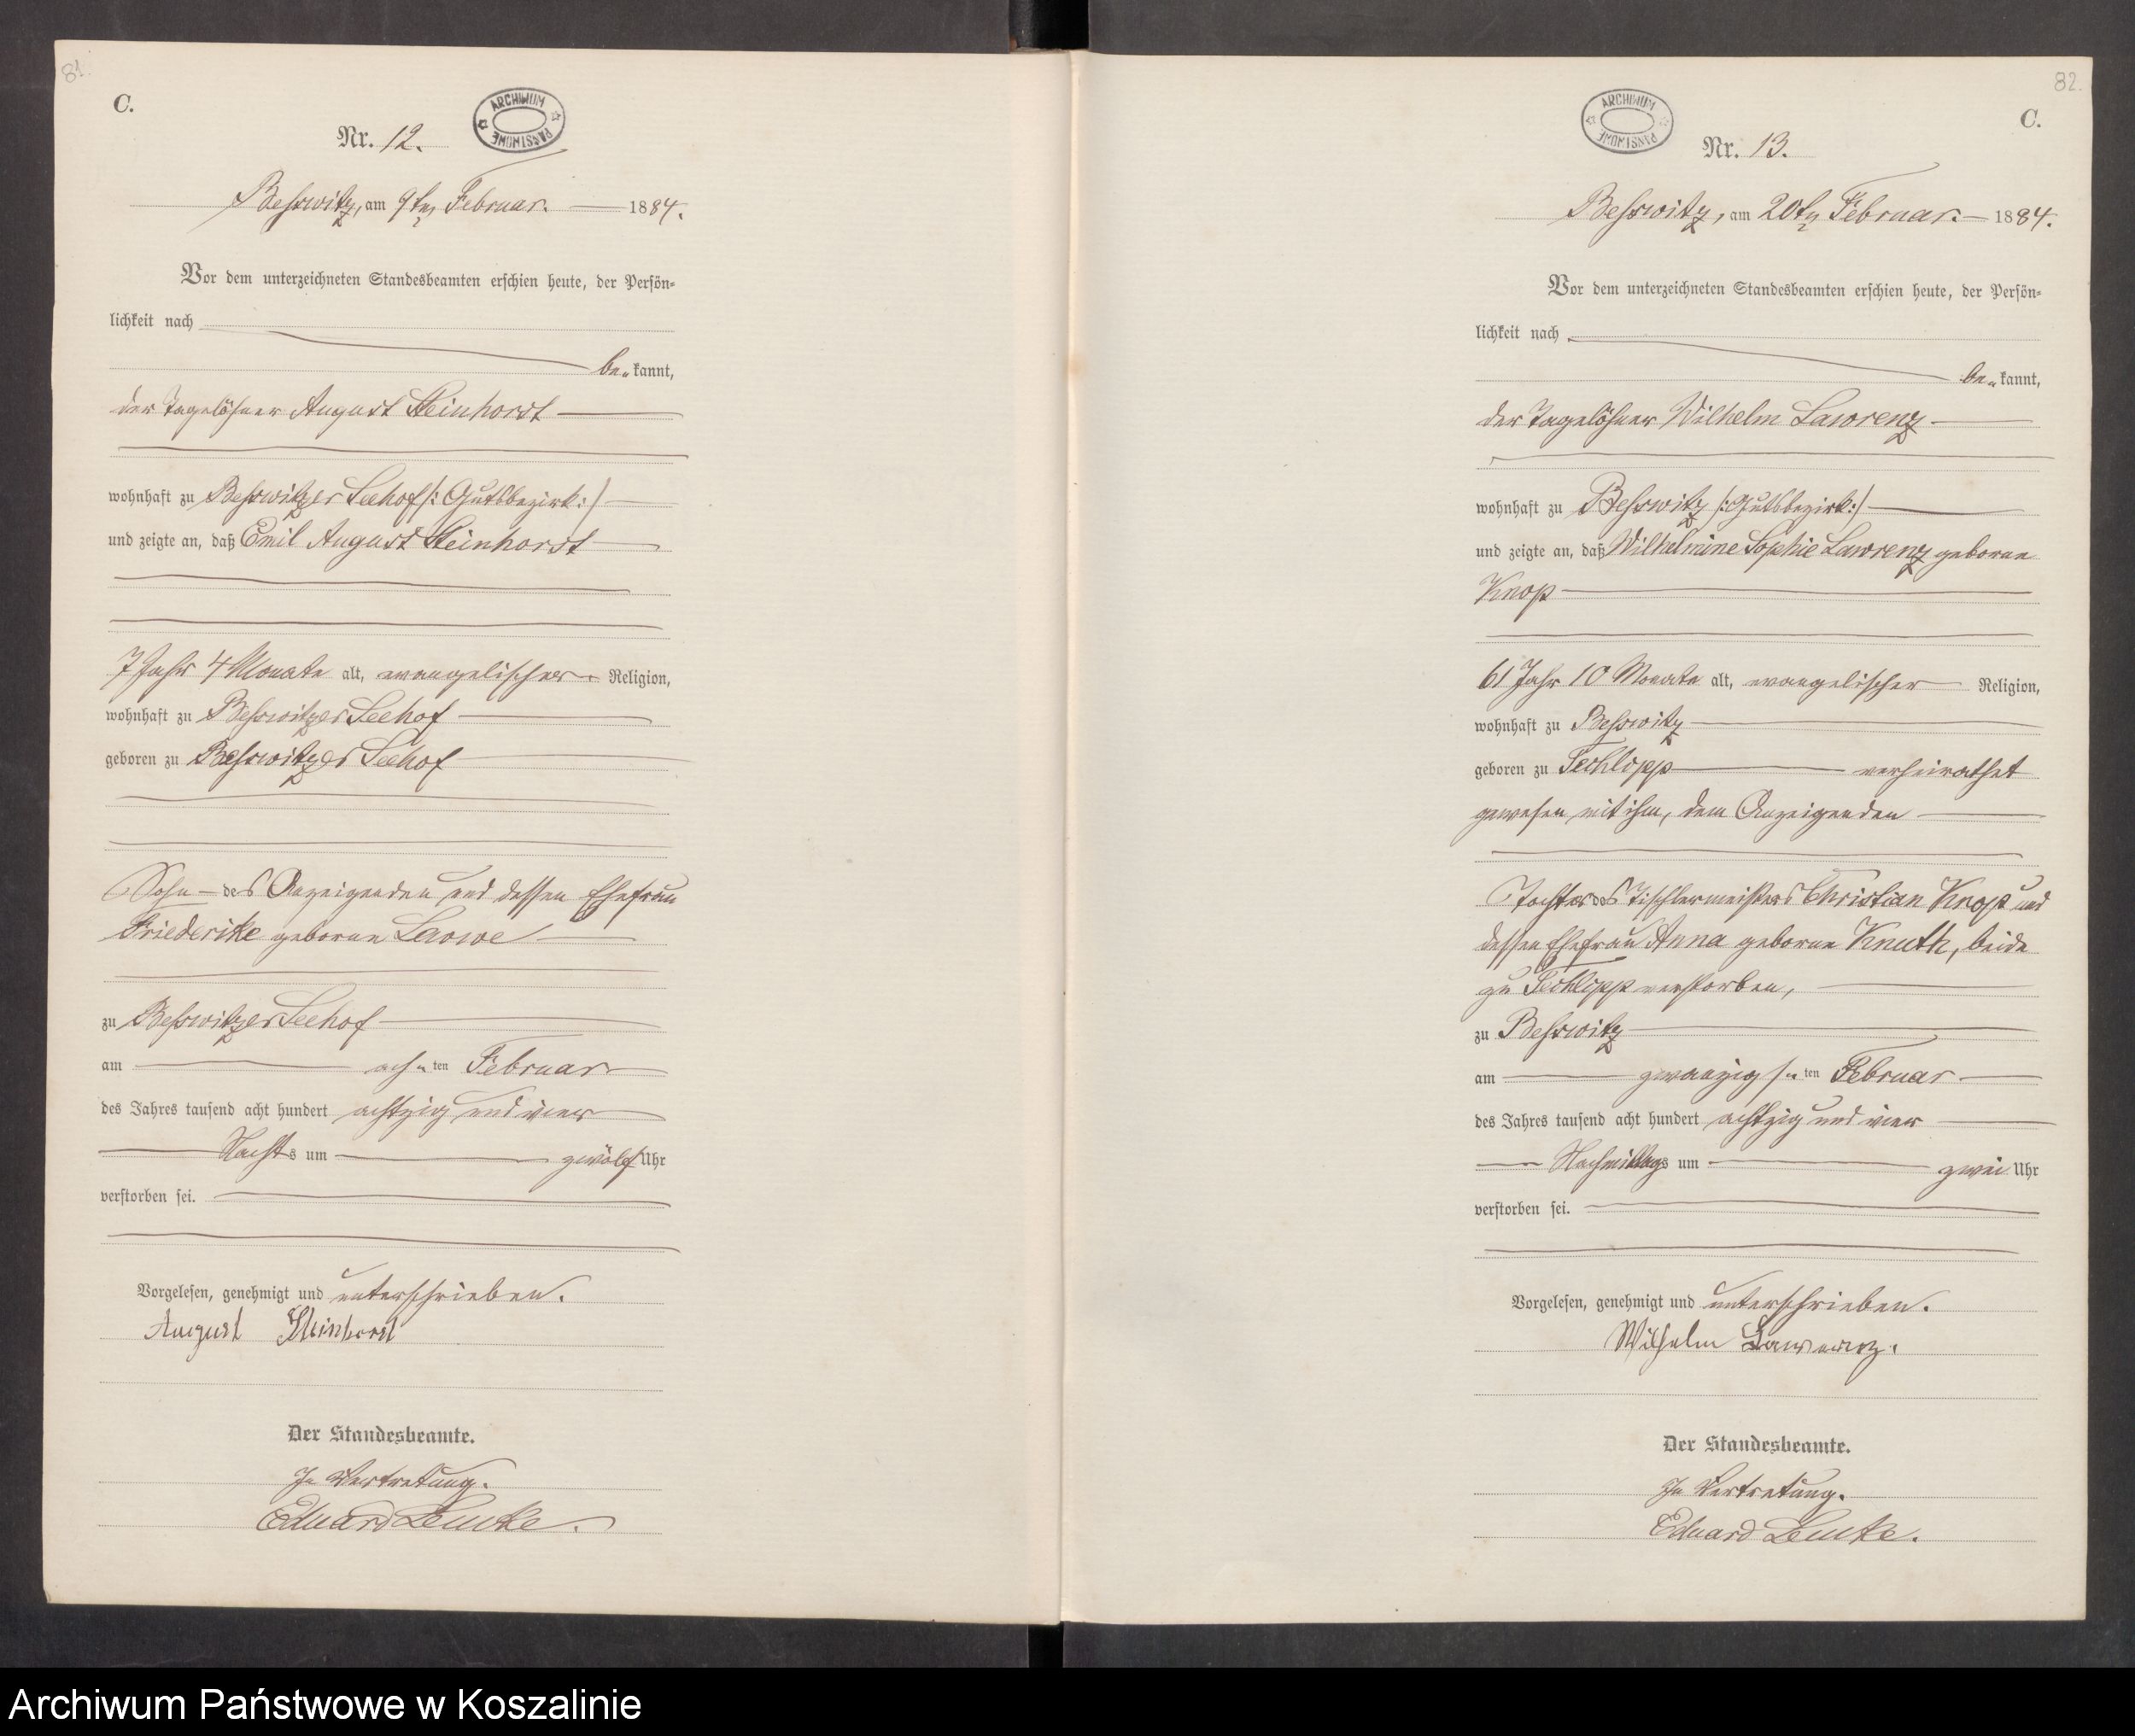 81.
C.
ARCHIWUM PAŃSTWOWE
Nr. 12.
Beßwitz, am 9ten Februar. 1884.
Vor dem unterzeichneten Standesbeamten erschien heute, der Persön-
lichkeit nach
be-kannt,
der Tagelöhner August Steinhorst
wohnhaft zu Beßwitzer Seehof /: Gutsbezirk :/
und zeigte an, daß Emil August Steinhorst
7 Jahr 4 Monate alt, evangelischer Religion,
wohnhaft zu Beßwitzer Seehof
geboren zu Beßwitzer Seehof
Sohn des Anzeigenden und dessen Ehefrau
Friederike geborne
zu Beßwitzer Seehof
am ach-ten Februar
des Jahres tausend acht hundert achtzig und vier
Nachts um zwölf Uhr
verstorben sei.
Vorgelesen, genehmigt und unterschrieben.
August Steinhorst
Der Standesbeamte.
In Vertretung.
Eduard Lemke.
82.
C.
ARCHIWUM PAŃSTWOWE
Nr. 13.
Beßwitz, am 20ten Februar. 1884.
Vor dem unterzeichneten Standesbeamten erschien heute, der Persön-
lichkeit nach
be-kannt,
der Tagelöhner Wilhelm Lawrenz
wohnhaft zu Beßwitz /: Gutsbezirk :/
und zeigte an, daß Wilhelmine Sophie Lawrenz geborne
Knop
61 Jahr 10 Monate alt, evangelischer Religion,
wohnhaft zu Beßwitz
geboren zu Techlipp verheirathet
gewesen mit ihm, dem Anzeigenden
Tochter des Tischlermeisters Christian Knop und
dessen Ehefrau Anna geborne Knuth, beide
zu Techlipp verstorben,
zu Beßwitz
am zwanzigs-ten Februar
des Jahres tausend acht hundert achtzig und vier
Nachmittags um zwei Uhr
verstorben sei.
Vorgelesen, genehmigt und unterschrieben.
Wilhelm Lawrenz.
Der Standesbeamte.
In Vertretung.
Eduard Lemke.
Archiwum Państwowe w Koszalinie